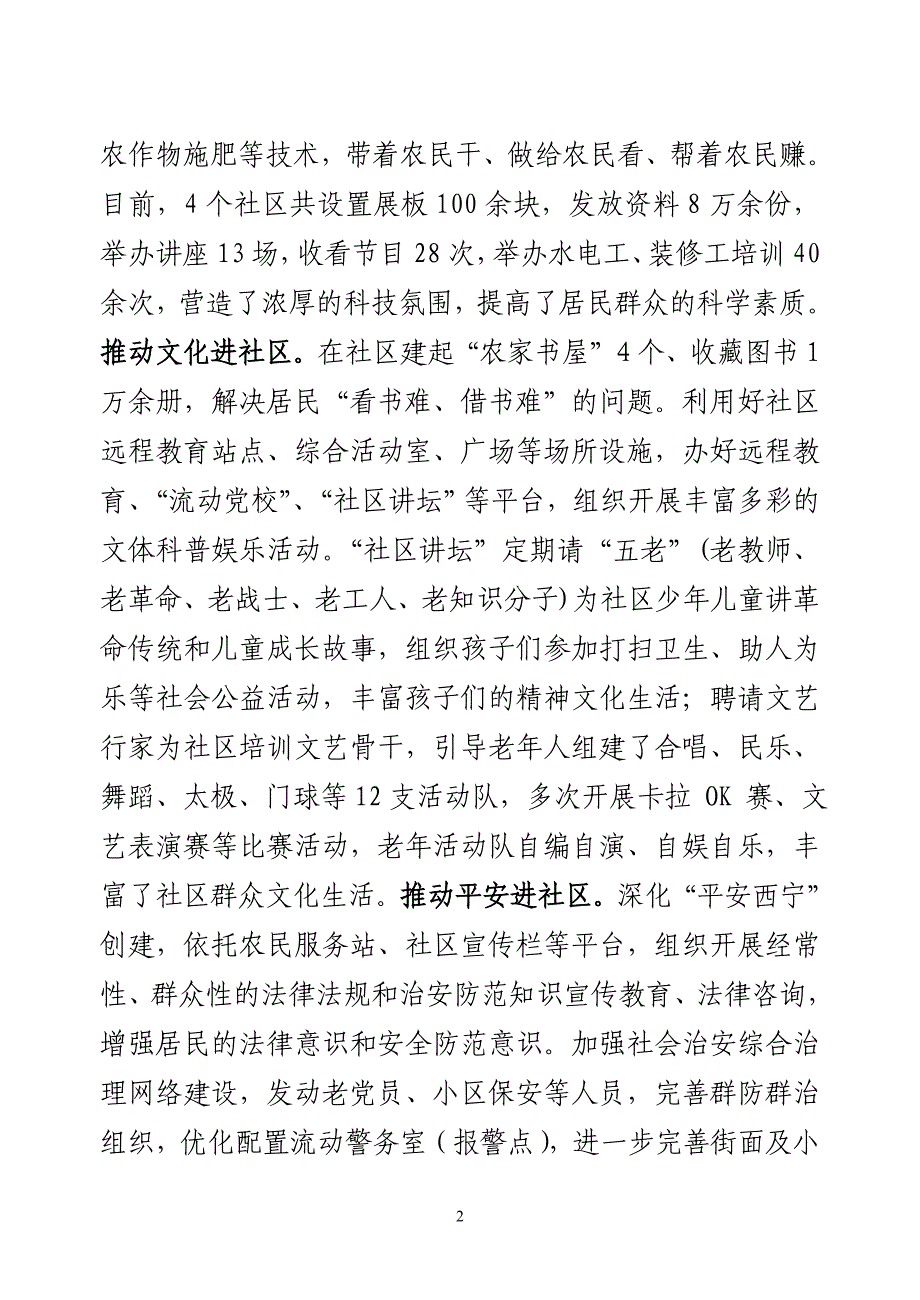 农作物施肥等技术，带着农民干、做给农民看、帮着农民赚。
目前，4 个社区共设置展板 100 余块，发放资料 8 万余份，
举办讲座 13 场，收看节目 28 次，举办水电工、装修工培训 40
余次，营造了浓厚的科技氛围，提高了居民群众的科学素质。
推动文化进社区。在社区建起“农家书屋”4 个、收藏图书 1
万余册，解决居民“看书难、借书难”的问题。利用好社区
远程教育站点、综合活动室、广场等场所设施，办好远程教
育、“流动党校”、“社区讲坛”等平台，组织开展丰富多彩的
文体科普娱乐活动。“社区讲坛”定期请“五老”(老教师、
老革命、老战士、老工人、老知识分子)为社区少年儿童讲革
命传统和儿童成长故事，组织孩子们参加打扫卫生、助人为
乐等社会公益活动，丰富孩子们的精神文化生活；聘请文艺
行家为社区培训文艺骨干，引导老年人组建了合唱、民乐、
舞蹈、太极、门球等 12 支活动队，多次开展卡拉 OK 赛、文
艺表演赛等比赛活动，老年活动队自编自演、自娱自乐，丰
富了社区群众文化生活。推动平安进社区。深化“平安西宁”
创建，依托农民服务站、社区宣传栏等平台，组织开展经常
性、群众性的法律法规和治安防范知识宣传教育、法律咨询，
增强居民的法律意识和安全防范意识。加强社会治安综合治
理网络建设，发动老党员、小区保安等人员，完善群防群治
组织，优化配置流动警务室（报警点），进一步完善街面及小
2